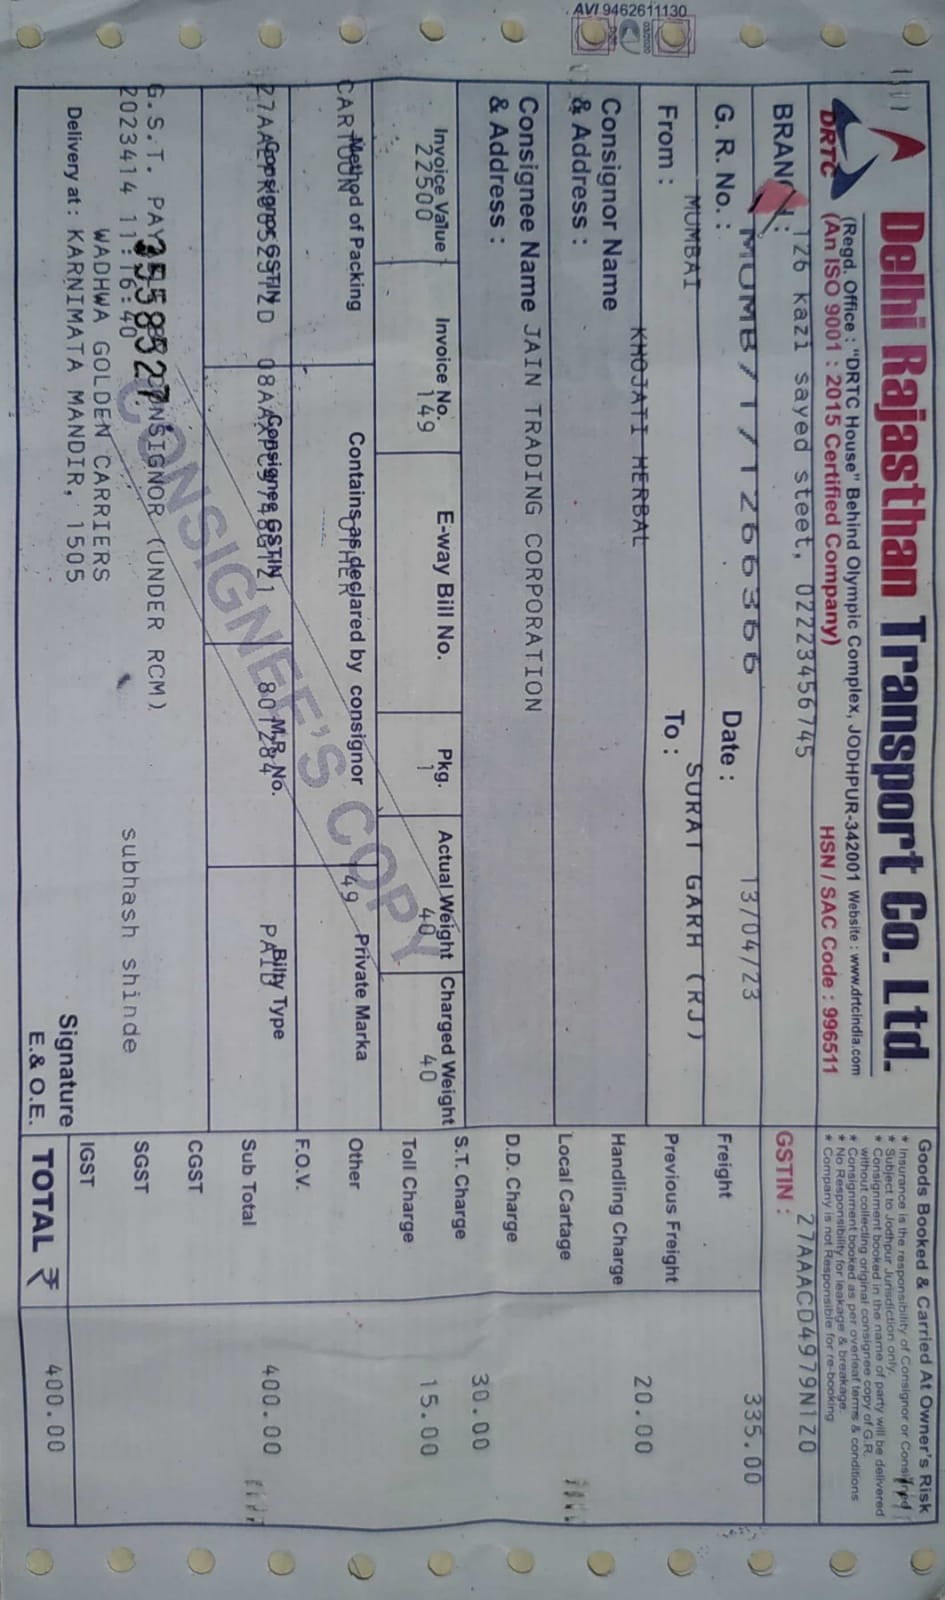 AVI 9462611130
Delhi Rajasthan Transport Co. Ltd.
DRTC
(Regd. Office : "DRTC House" Behind Olympic Complex, JODHPUR-342001 Website : www.drtcindia.com
(An ISO 9001 : 2015 Certified Company) HSN / SAC Code : 996511
Goods Booked & Carried At Owner's Risk
* Insurance is the responsibility of Consignor or
* Subject to Jodhpur Jurisdiction only.
* Consignment booked in the name of party will be delivered
without collecting original consignee copy of G.R.
* Consignment booked as per overleaf terms & conditions
* No Responsibility for leakage & breakage.
* Company is not Responsible for re-booking
BRANCH : 126 kazi sayed steet, 02223456745
GSTIN : 27AAACD4979N1Z0
G. R. No. : MUMB/1/1266366 Date : 13/04/23
Freight 335.00
From : MUMBAI To : SURAT GARH (RJ)
Previous Freight
Consignor Name KHOJATI HERBAL
& Address :
Handling Charge 20.00
Local Cartage
Consignee Name JAIN TRADING CORPORATION
& Address :
D.D. Charge
S.T. Charge 30.00
Invoice Value Invoice No. E-way Bill No. Pkg. Actual Weight Charged Weight
22500 149 1 40 40
Toll Charge 15.00
Method of Packing Contains as declared by consignor Private Marka
CARTOON OTHER 149
Other
F.O.V.
Consignor GSTIN Consignee GSTIN M.R. No. Bilty Type
801284 PAID
Sub Total 400.00
CONSIGNEE'S COPY
CGST
G.S.T. PAY CONSIGNOR (UNDER RCM)
3558527
2023414 11:16:40 subhash shinde
SGST
WADHWA GOLDEN CARRIERS
Delivery at : KARNIMATA MANDIR, 1505
IGST
Signature
E.& O.E.
TOTAL ₹ 400.00